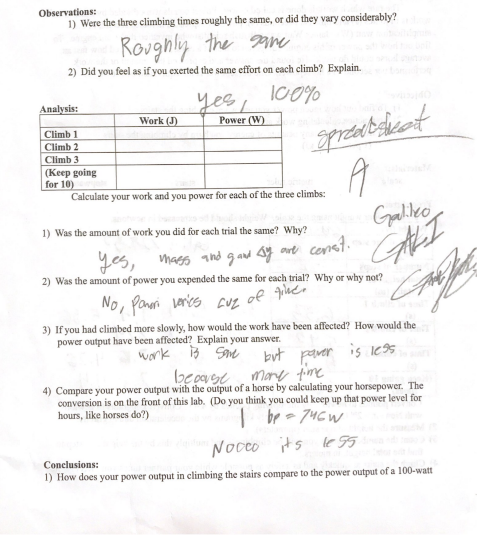 Observations:
1) Were the three climbing times roughly the same, or did they vary considerably?
Roughly the same
2) Did you feel as if you exerted the same effort on each climb? Explain.
yes, 100%
Analysis:
Work (J) Power (W)
Climb 1
Climb 2
Climb 3
(Keep going
for 10)
spreadsheet
A
Calculate your work and you power for each of the three climbs:
Galileo
1) Was the amount of work you did for each trial the same? Why?
yes, mass and g and Δy are const.
2) Was the amount of power you expended the same for each trial? Why or why not?
No, Power varies cuz of time.
3) If you had climbed more slowly, how would the work have been affected? How would the
power output have been affected? Explain your answer.
work is same but power is less
because more time
4) Compare your power output with the output of a horse by calculating your horsepower. The
conversion is on the front of this lab. (Do you think you could keep up that power level for
hours, like horses do?)
1 hp = 746W
Noooo its less
Conclusions:
1) How does your power output in climbing the stairs compare to the power output of a 100-watt